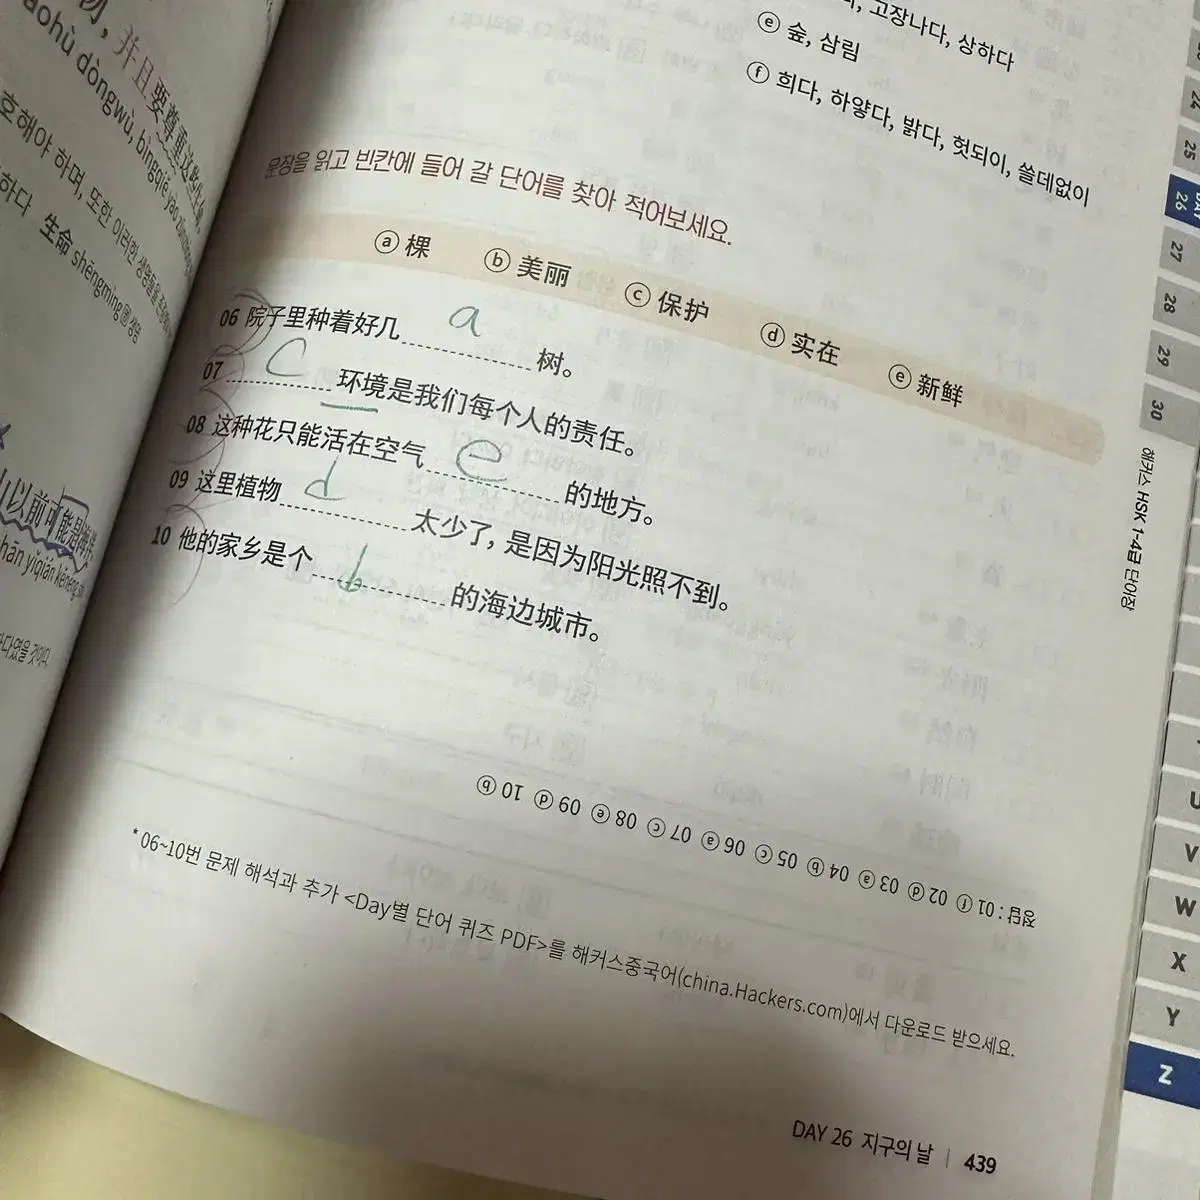 物,并且要尊重这些生命
bǎohù dòngwù, bìngqiě yào
호해야 하며, 또한 이러한 생명들을 존중
하다 生命 shēngmìng 명 생명
以前可能是海洋
yǐqián kěnéng
다였을 것이다.
고장나다, 상하다
ⓔ 숲, 삼림
ⓕ 희다, 하얗다, 밝다, 헛되이, 쓸데없이
문장을 읽고 빈칸에 들어 갈 단어를 찾아 적어보세요.
ⓐ 棵 ⓑ 美丽 ⓒ 保护 ⓓ 实在 ⓔ 新鲜
06 院子里种着好几 a 树。
07 C 环境是我们每个人的责任。
08 这种花只能活在空气 e 的地方。
09 这里植物 d 太少了, 是因为阳光照不到。
10 他的家乡是个 b 的海边城市。
정답: 01 ⓕ 02 ⓓ 03 ⓐ 04 ⓑ 05 ⓒ 06 ⓐ 07 ⓒ 08 ⓔ 09 ⓓ 10 ⓑ
* 06~10번 문제 해석과 추가 <Day별 단어 퀴즈 PDF>를 해커스중국어(china.Hackers.com)에서 다운로드 받으세요.
DAY 26 지구의 날 | 439
24
25
DAY 26
27
28
29
30
해커스 HSK 1-4급 단어장
U
V
W
X
Y
Z